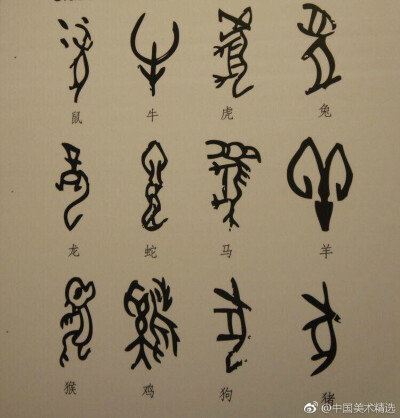 鼠 牛 虎 兔
龙 蛇 马 羊
猴 鸡 狗 猪
@中国美术精选